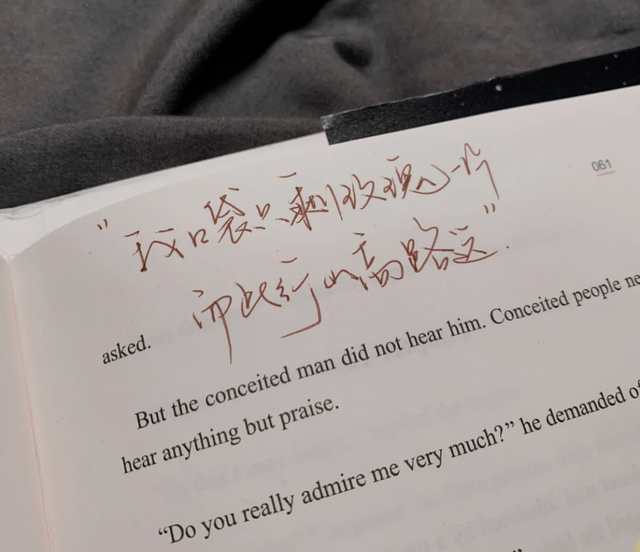 061
"我口袋只剩玫瑰一片
而此行山高路远".
asked.
But the conceited man did not hear him. Conceited people ne
hear anything but praise.
"Do you really admire me very much?" he demanded of